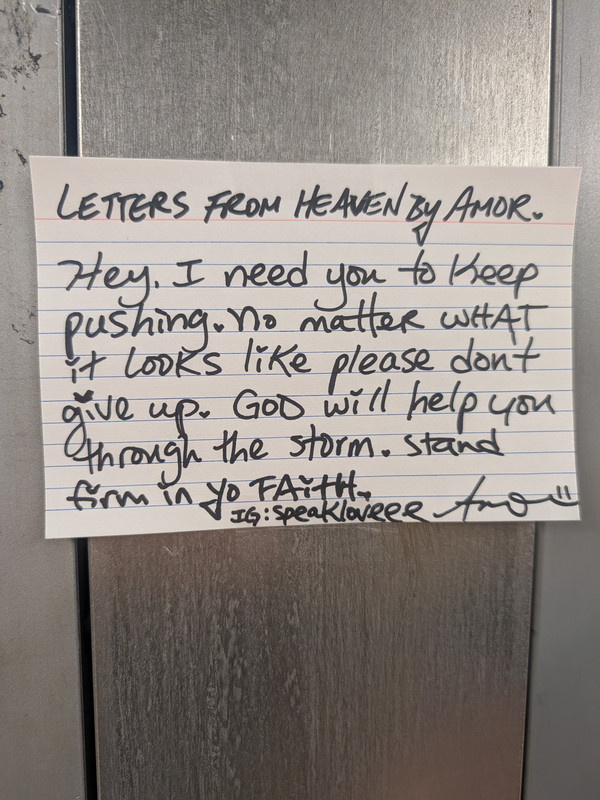 LETTERS FROM HEAVEN By AMOR.
Hey. I need you to Keep
pushing. No matter WHAT
it LOOKS like please dont
give up. GOD will help you
through the storm. Stand
firm in yo FAitH.
IG: speakloveee Amor